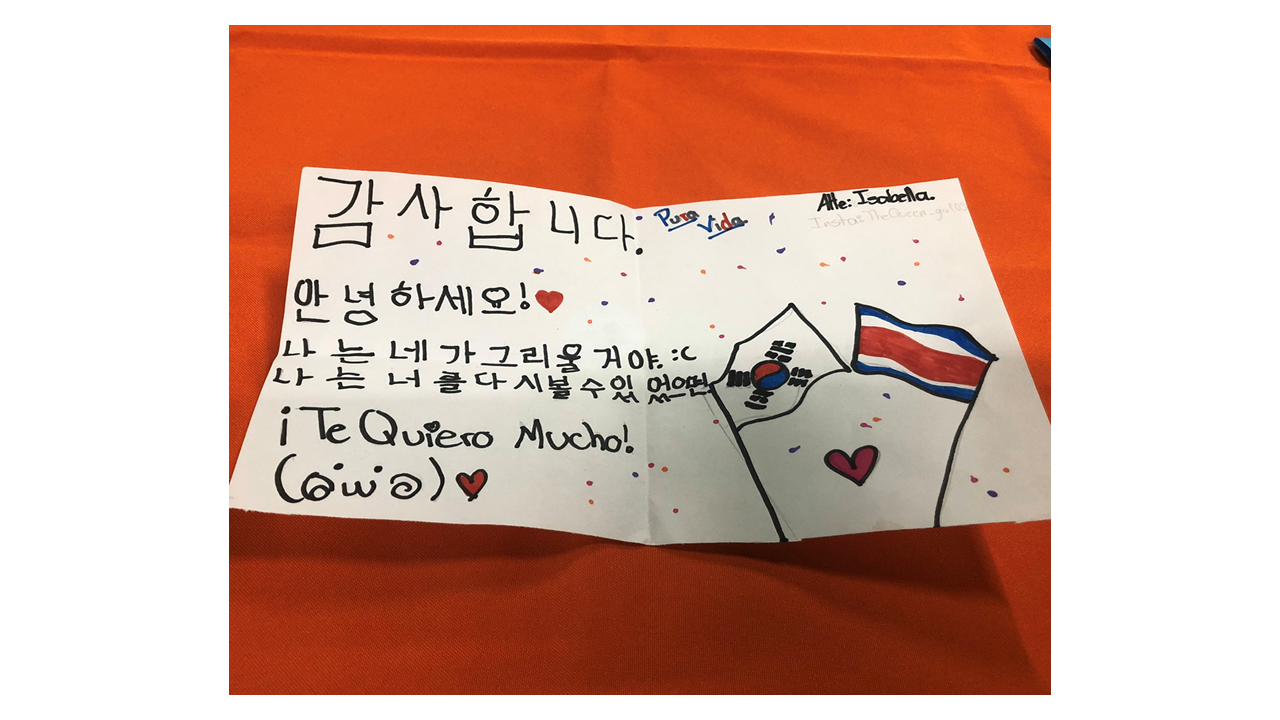 감사합니다.
안녕하세요!
나는 네가 그리울 거야. :c
나는 너를 다시 볼 수 있
¡Te Quiero Mucho!
Pura
Vida
Atte: Isabella.